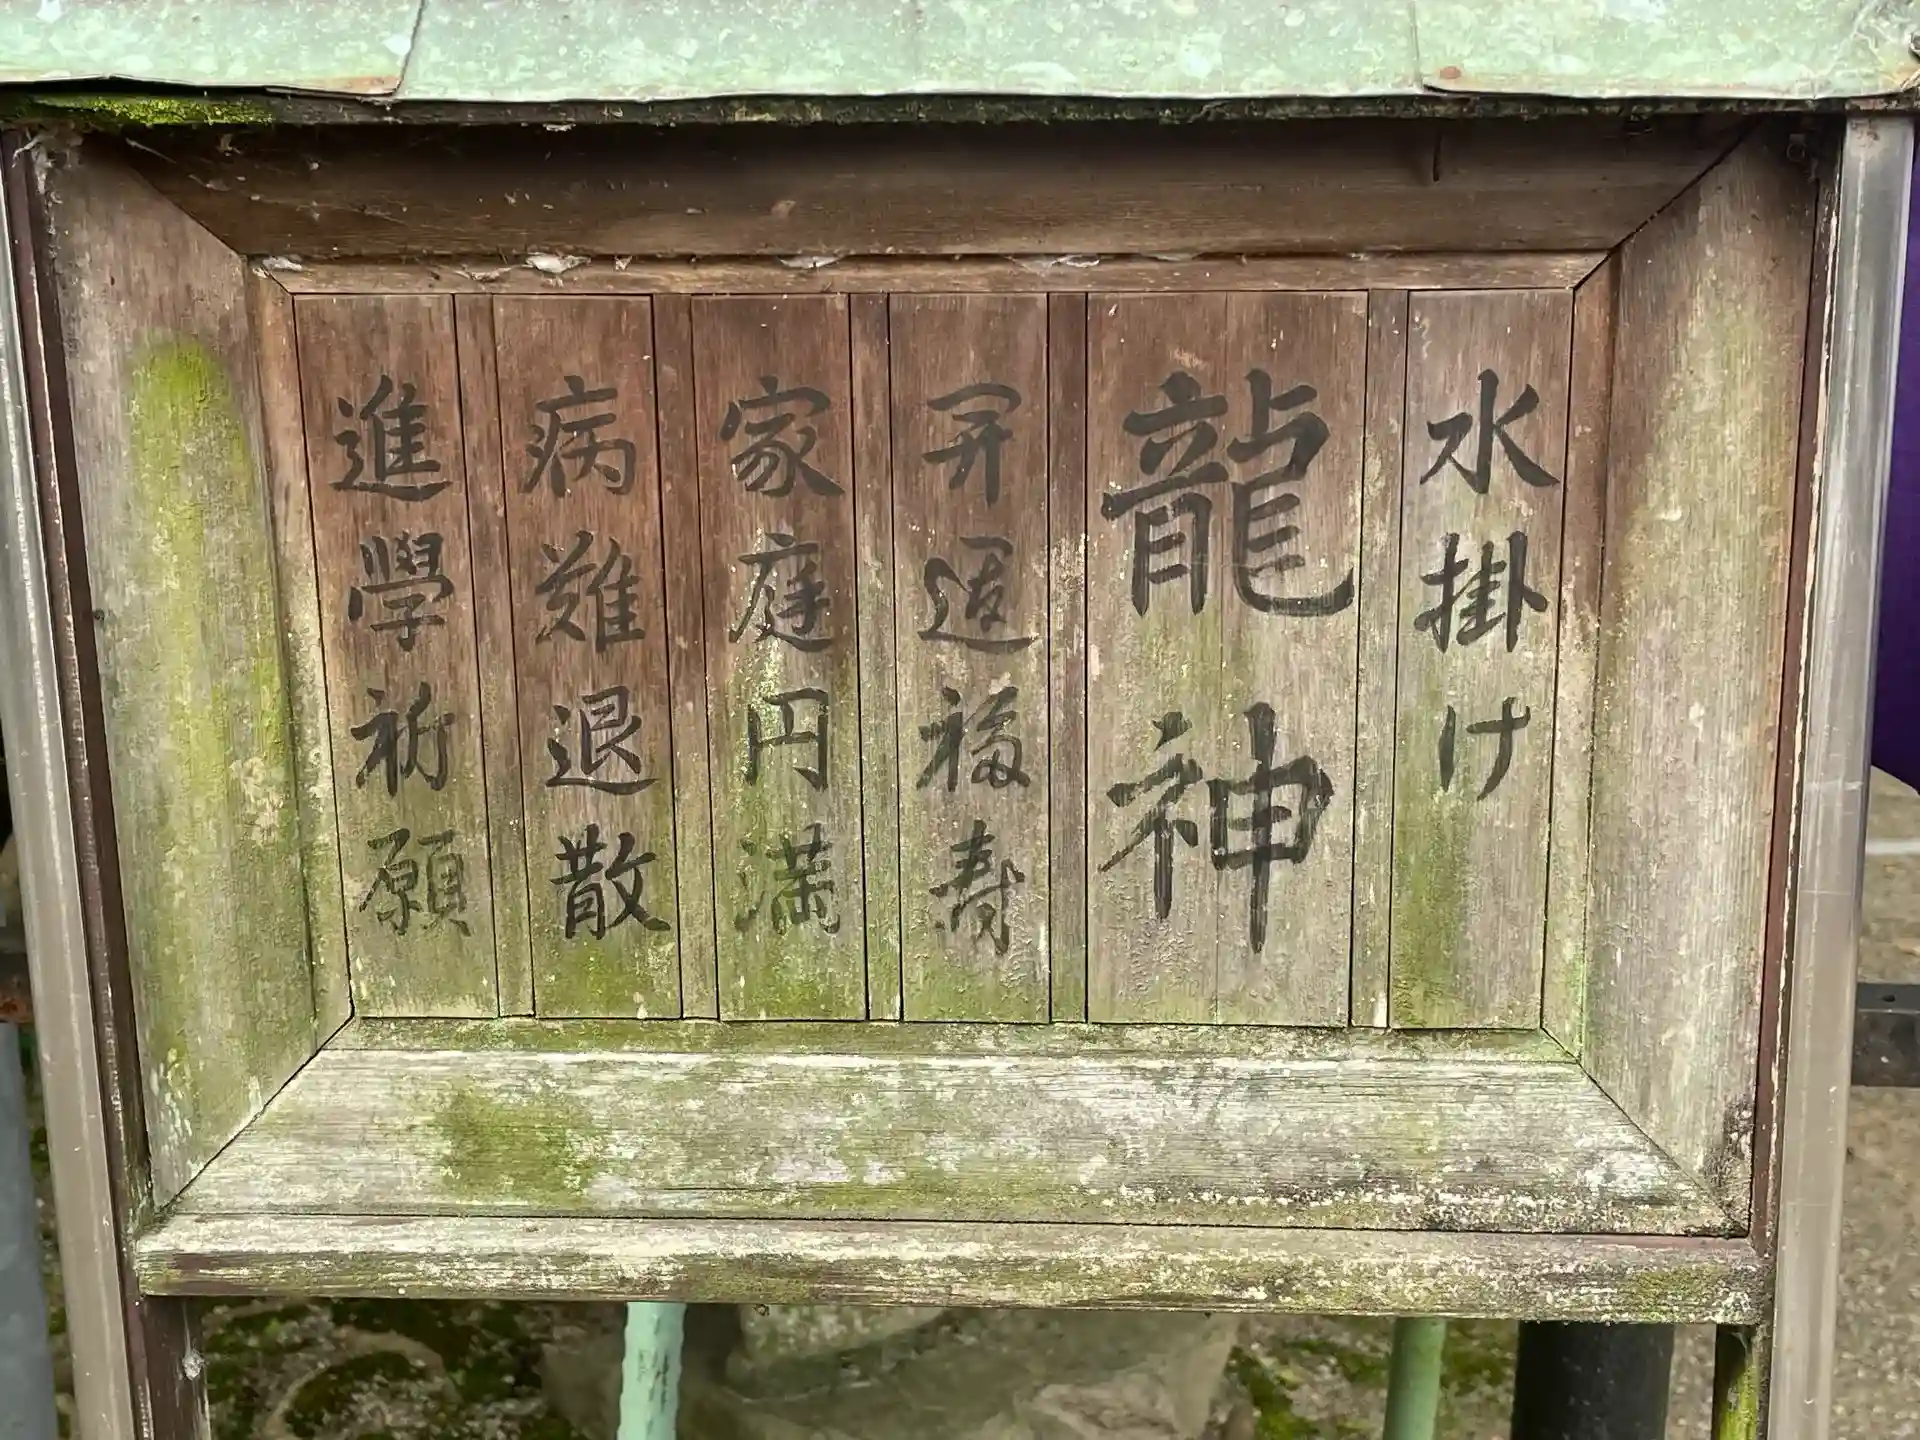 水掛け
龍神
開運福寿
家庭円満
病難退散
進學祈願